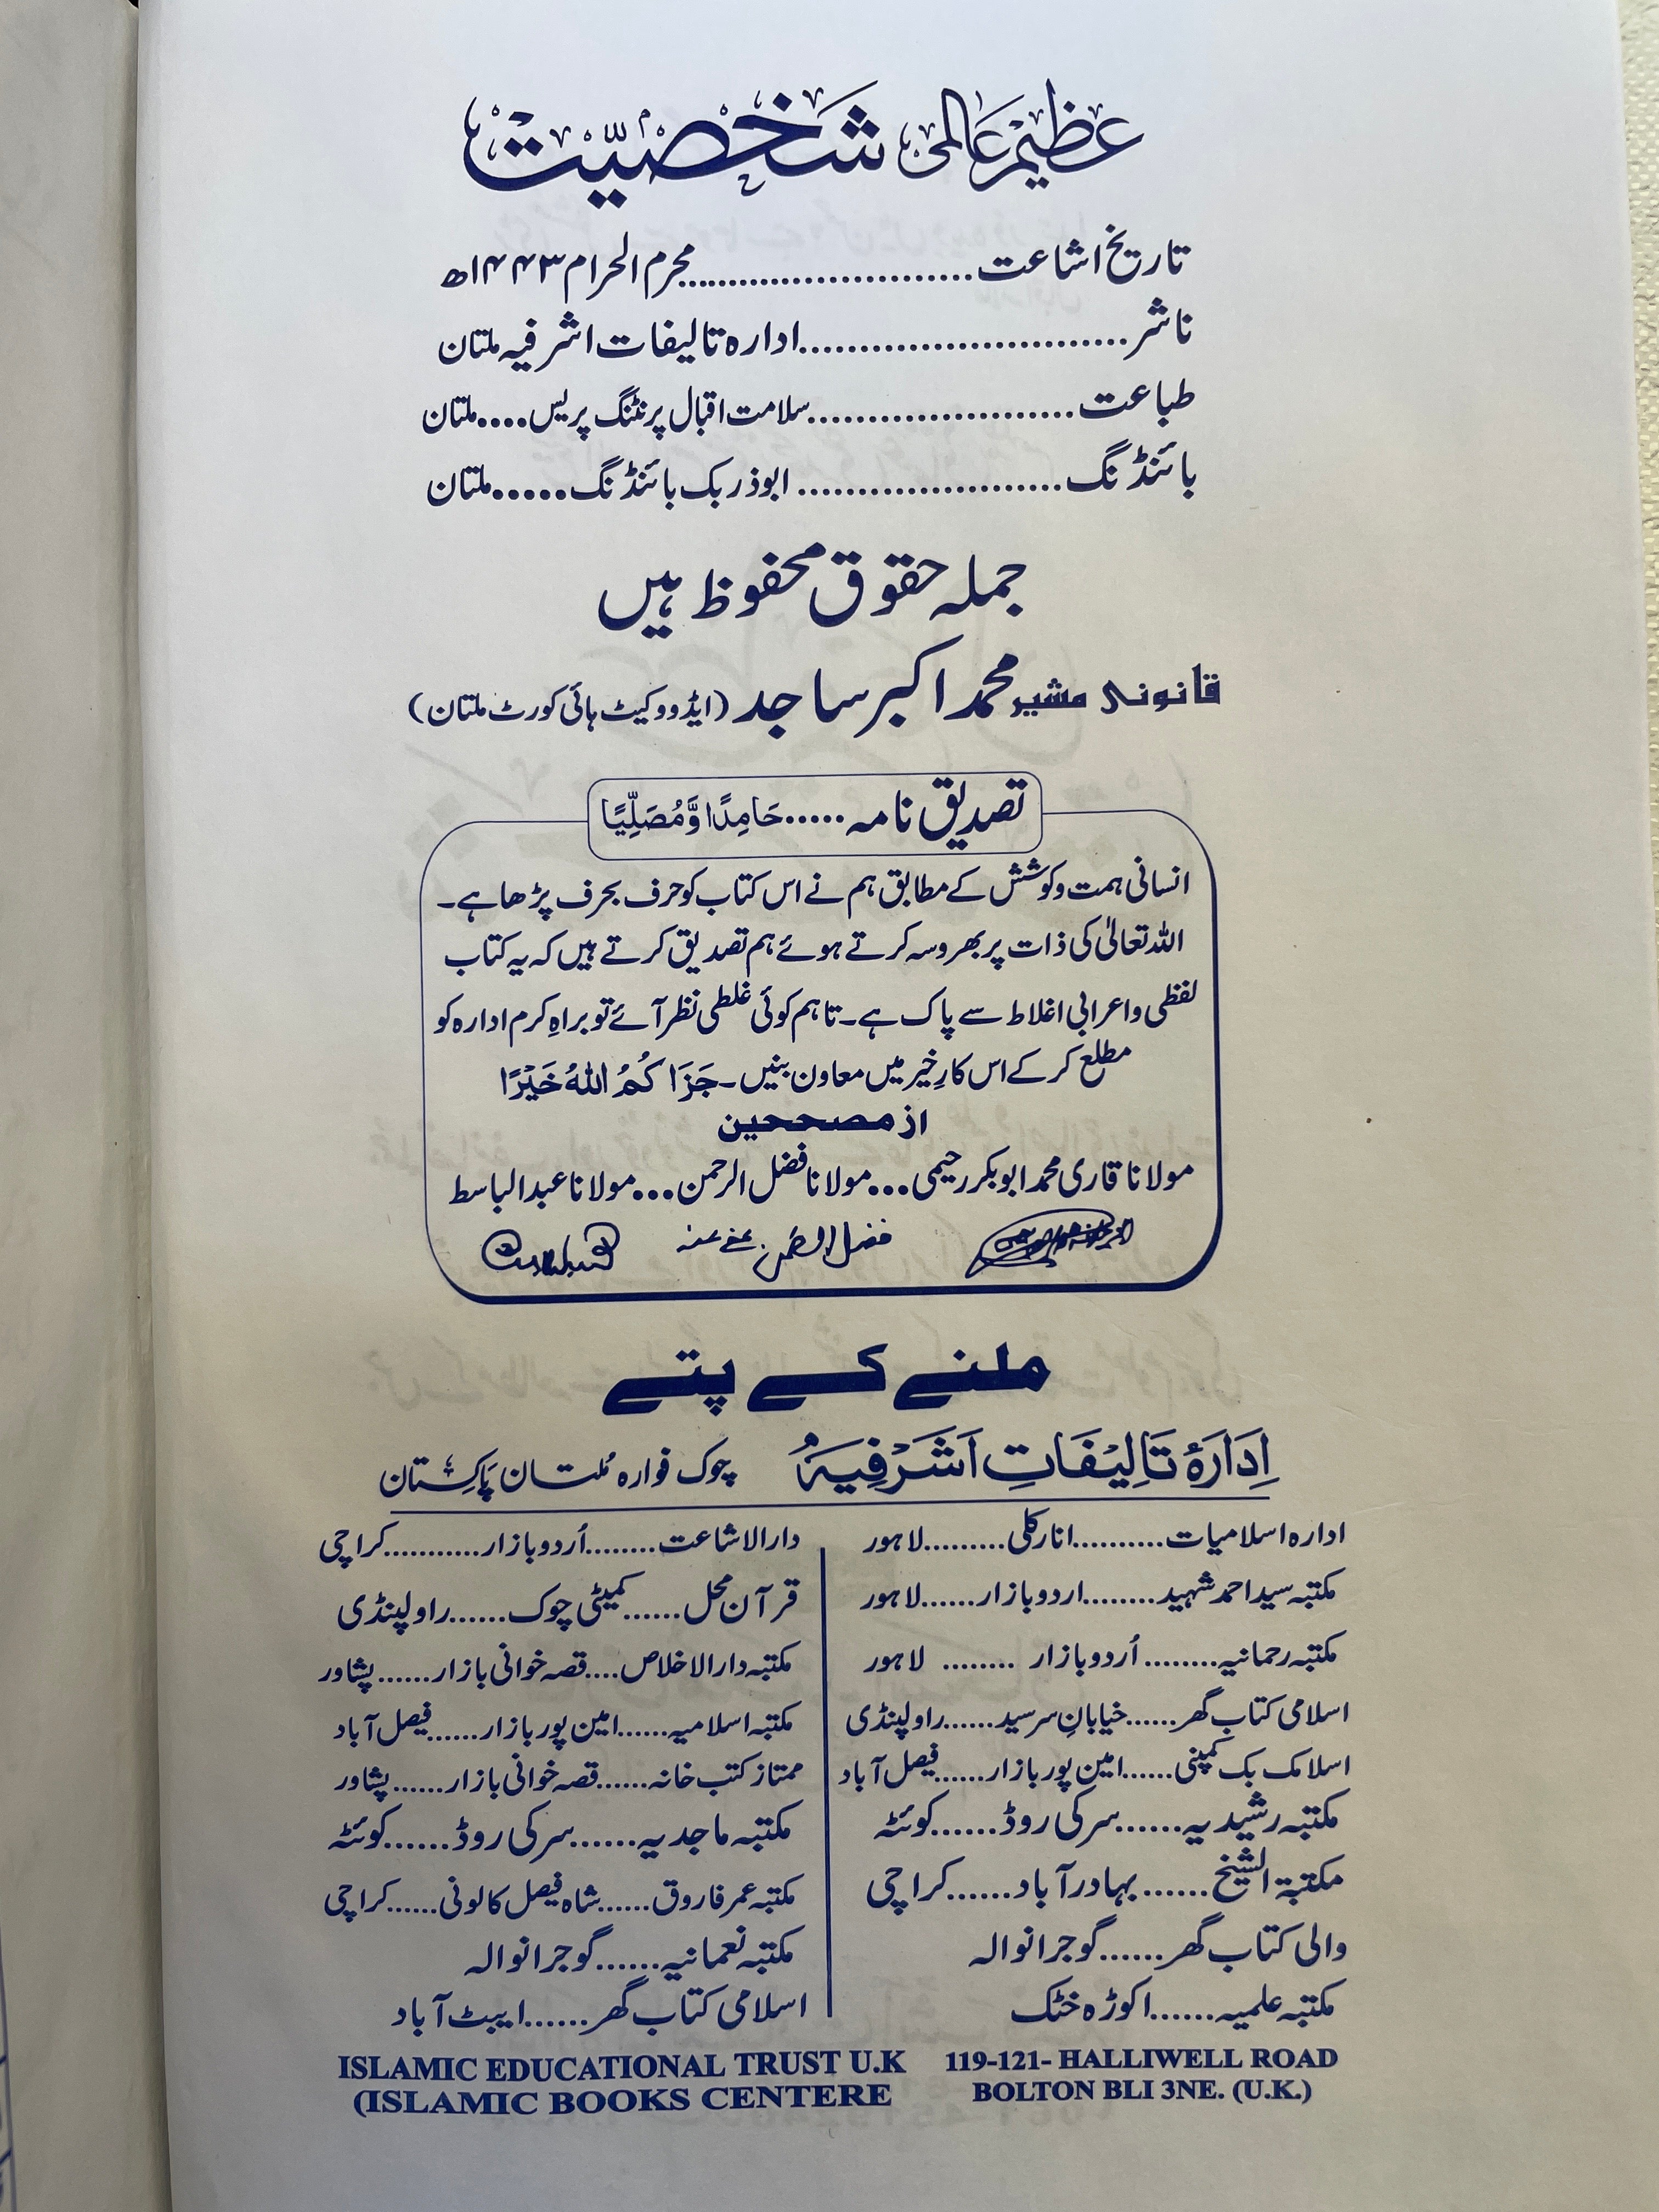 عظیم عالمی شخصیت
تاریخ اشاعت..........................محرم الحرام ۱۴۴۳ھ
ناشر............................ادارہ تالیفات اشرفیہ ملتان
طباعت.......................سلامت اقبال پرنٹنگ پریس....ملتان
بائنڈنگ......................ابوذر بک بائنڈنگ.....ملتان
جملہ حقوق محفوظ ہیں
قانونی مشیر محمد اکبر ساجد (ایڈووکیٹ ہائی کورٹ ملتان)
تصدیق نامہ.....حَامِدًا وَّمُصَلِّیًا
انسانی ہمت وکوشش کے مطابق ہم نے اس کتاب کو حرف بحرف پڑھا ہے۔
اللہ تعالیٰ کی ذات پر بھروسہ کرتے ہوئے ہم تصدیق کرتے ہیں کہ یہ کتاب
لفظی و اعرابی اغلاط سے پاک ہے۔ تاہم کوئی غلطی نظر آئے تو براہِ کرم ادارہ کو
مطلع کر کے اس کارِ خیر میں معاون بنیں۔ جَزَاکُمُ اللہُ خَیْرًا
از مصححین
مولانا قاری محمد ابوبکر رحیمی...مولانا فضل الرحمن...مولانا عبدالباسط
فضل الرحمن عفی عنہ
ملنے کے پتے
اِدَارَۂ تَالِیْفَاتِ اَشْرَفِیَہُ چوک فوارہ مُلتان پَاکِستان
ادارہ اسلامیات..........انارکلی.........لاہور
مکتبہ سید احمد شہید........اردو بازار......لاہور
مکتبہ رحمانیہ........اُردو بازار ........ لاہور
اسلامی کتاب گھر......خیابانِ سرسید......راولپنڈی
اسلامک بک کمپنی......امین پور بازار......فیصل آباد
مکتبہ رشیدیہ......سرکی روڈ......کوئٹہ
مکتبۃ الشیخ......بہادر آباد......کراچی
والی کتاب گھر......گوجرانوالہ
مکتبہ علمیہ......اکوڑہ خٹک
دارالاشاعت........اُردو بازار...........کراچی
قرآن محل......کمیٹی چوک......راولپنڈی
مکتبہ دارالاخلاص....قصہ خوانی بازار......پشاور
مکتبہ اسلامیہ......امین پور بازار......فیصل آباد
ممتاز کتب خانہ......قصہ خوانی بازار......پشاور
مکتبہ ماجدیہ......سرکی روڈ......کوئٹہ
مکتبہ عمر فاروق......شاہ فیصل کالونی......کراچی
مکتبہ نعمانیہ......گوجرانوالہ
اسلامی کتاب گھر......ایبٹ آباد
ISLAMIC EDUCATIONAL TRUST U.K 119-121- HALLIWELL ROAD
(ISLAMIC BOOKS CENTERE BOLTON BLI 3NE. (U.K.)